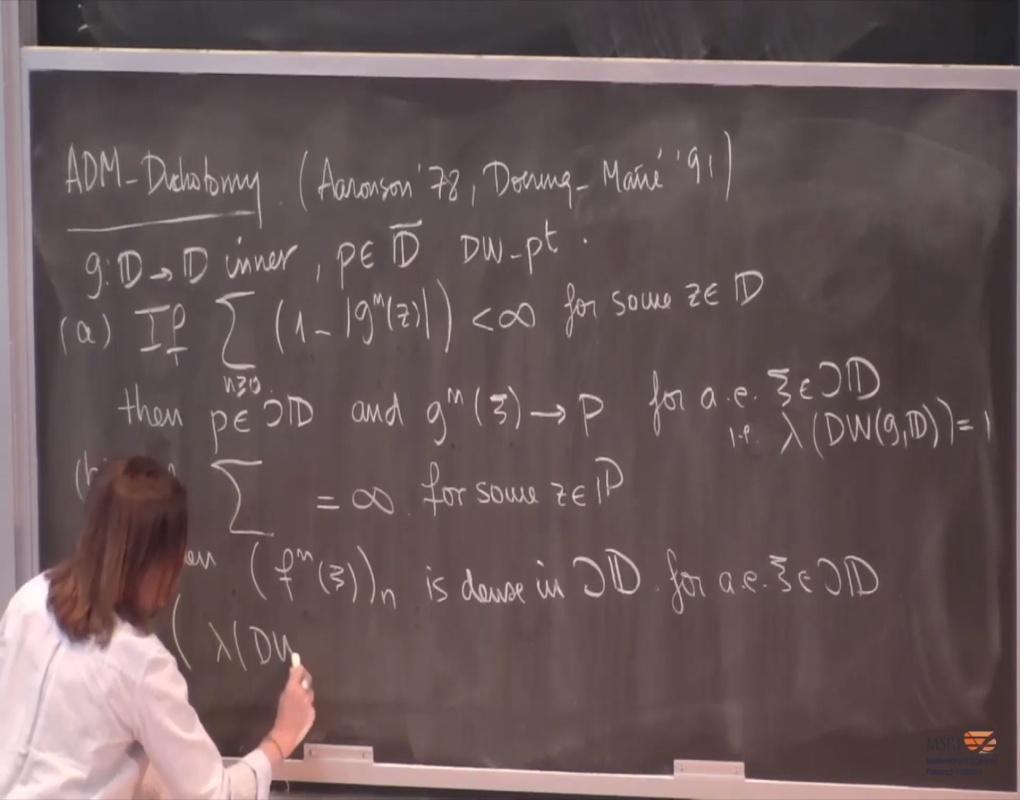 ADM-Dichotomy (Aaronson '78, Doering-Mañé '91)
g: 𝔻 → 𝔻 inner, p ∈ 𝔻̄ DW-pt.
(a) If ∑_{n≥0} (1 - |gⁿ(z)|) < ∞ for some z ∈ 𝔻
then p ∈ ∂𝔻 and gⁿ(ξ) → p for a.e. ξ ∈ ∂𝔻
i.e. λ(DW(g,𝔻)) = 1
∑ = ∞ for some z ∈ 𝔻
(fⁿ(ξ))ₙ is dense in ∂𝔻 for a.e. ξ ∈ ∂𝔻
( λ(DW
MSRI